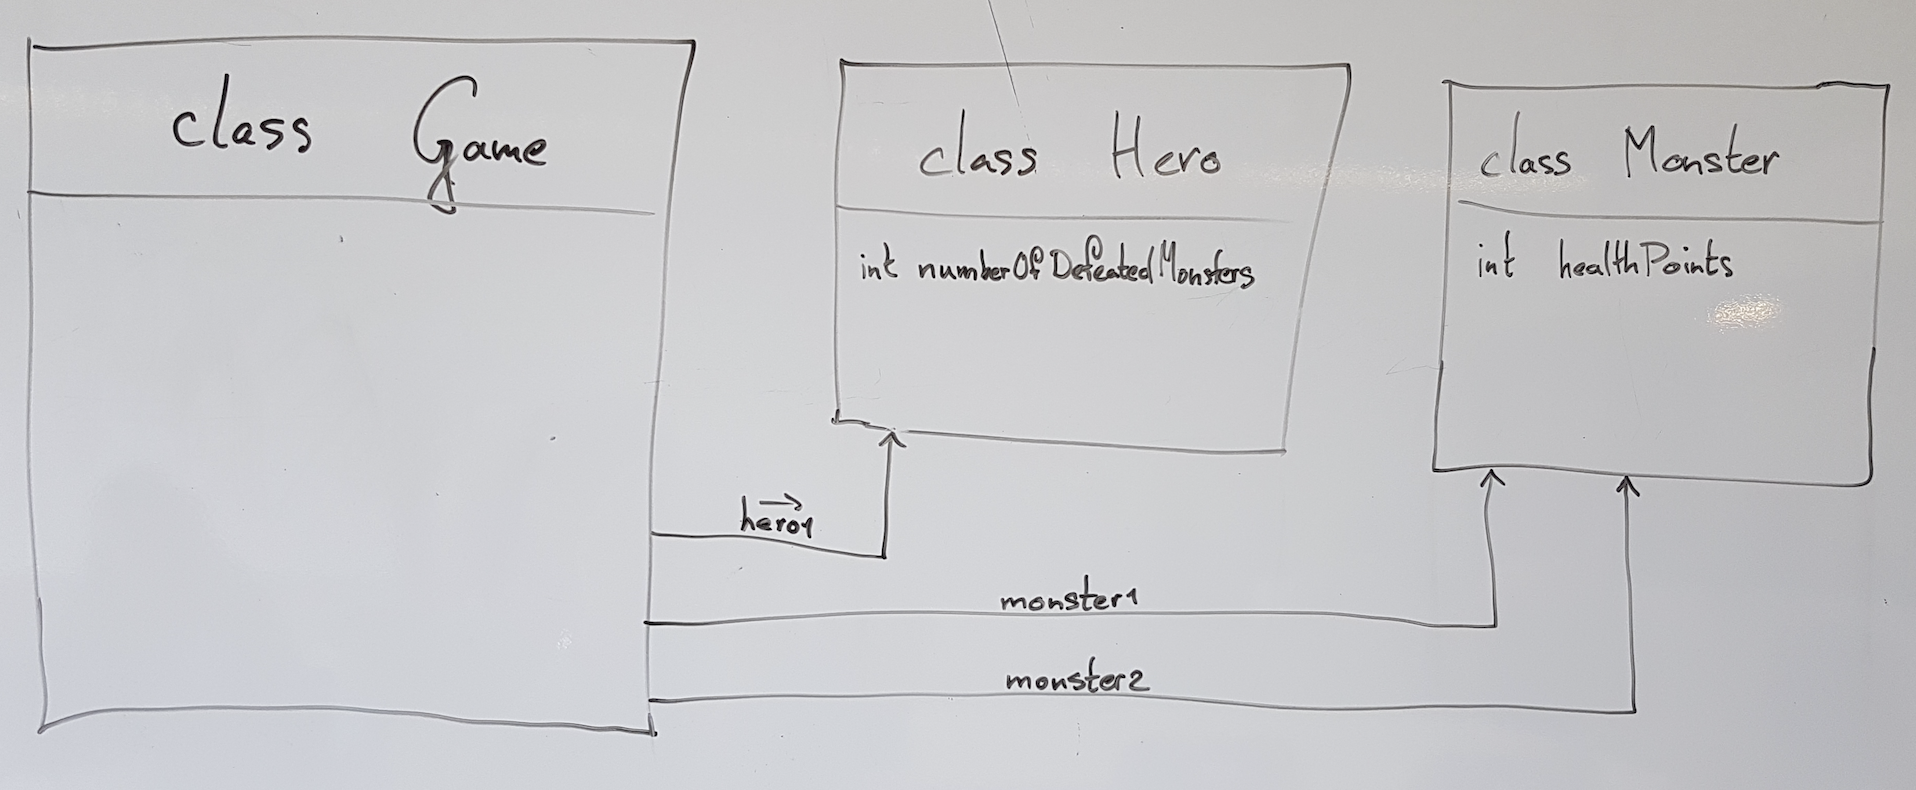 class Game
class Hero
int numberOfDefeatedMonsters
class Monster
int healthPoints
hero1
monster1
monster2